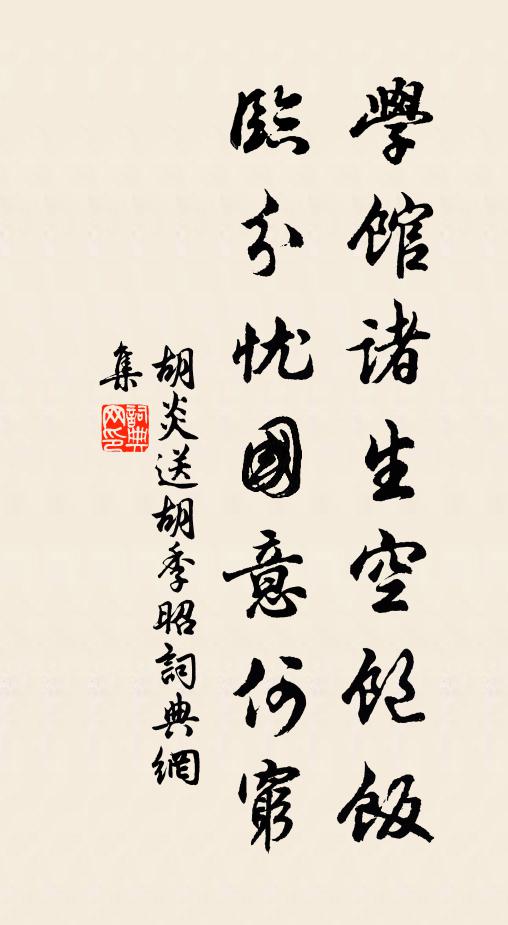 學館諸生空飽飯
臨分忧國意何窮
胡炎送胡季昭詞典網
集
詞典網印